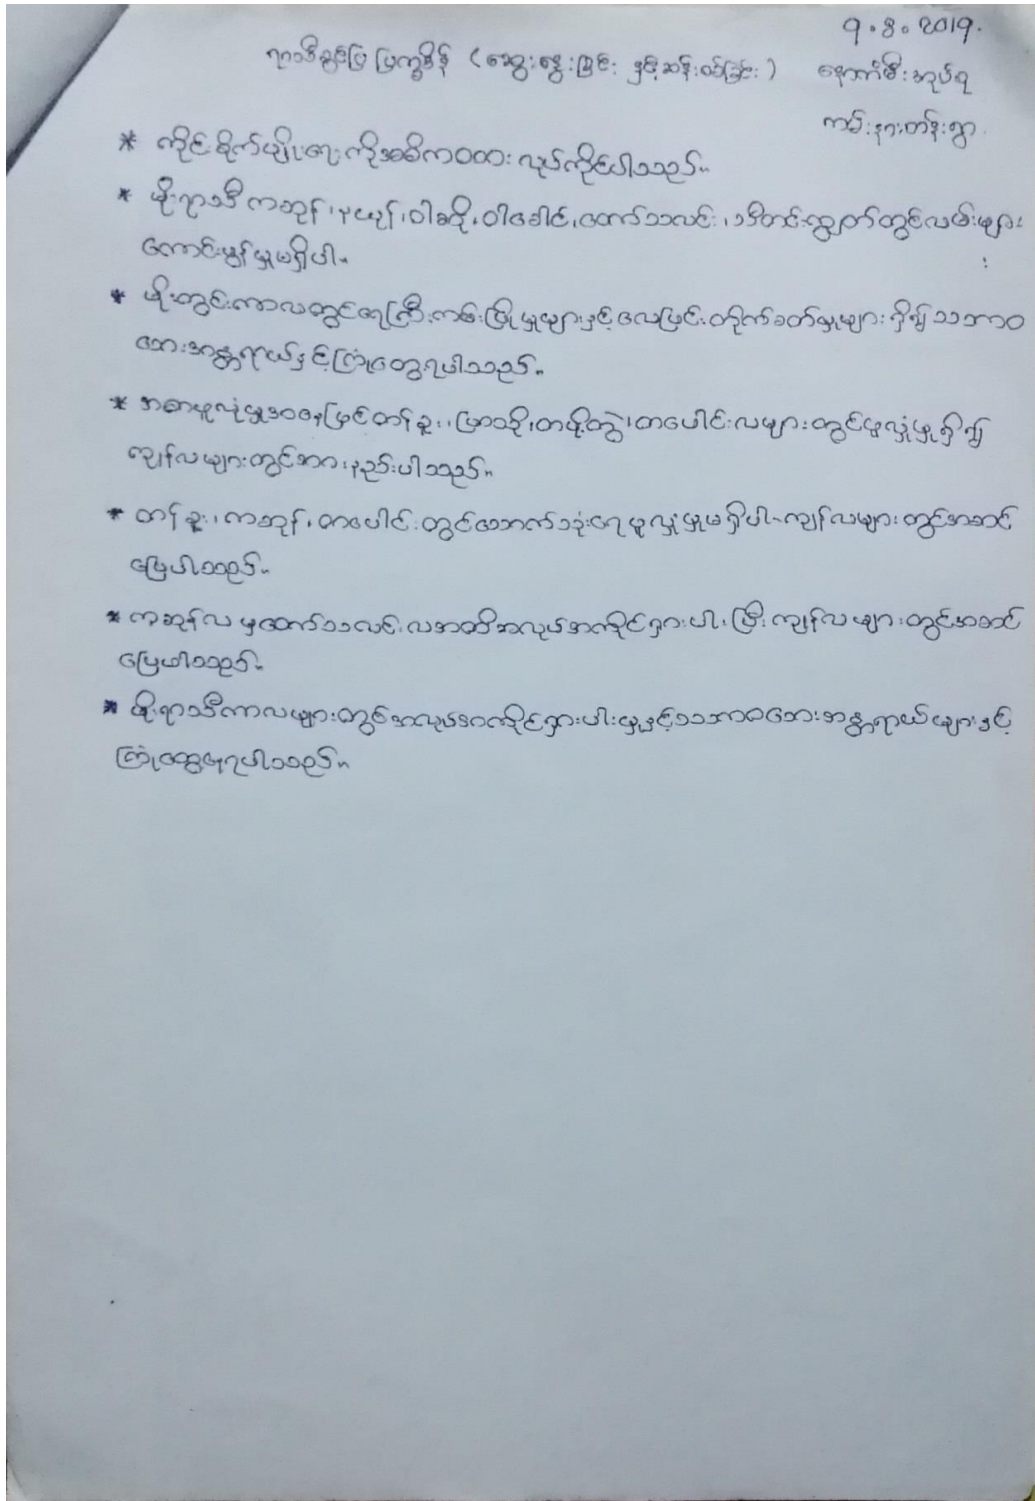 9.8.2019.
ရာသီခွင်ပြ ပြက္ခဒိန် (ဆွေးနွေးခြင်း နှင့်ဆန်းစစ်ခြင်း)
အုပ်စု
ကမ်းနားတန်းရွာ
* ကိုင်းစိုက်ပျိုးရေးကိုအဓိကထားလုပ်ကိုင်ပါသည်။
* မိုးရာသီ ကဆုန်၊ နယုန်၊ ဝါဆို၊ ဝါခေါင်၊ တော်သလင်း၊ သီတင်းကျွတ်တွင်လမ်းများ
ကောင်းမွန်မှုမရှိပါ။
* မိုးတွင်းကာလတွင်ရေကြီးကမ်းပြိုမှုများနှင့်လေပြင်းတိုက်ခတ်မှုများရှိ၍သဘာဝ
ဘေးအန္တရာယ်နှင့်ကြုံတွေ့ရပါသည်။
* အစာဖူလုံမှုအနေဖြင့်တန်ခူး၊ ပြာသို၊ တပို့တွဲ၊ တပေါင်းလများတွင်ဖူလုံမှုရှိ၍
ကျန်လများတွင်အားနည်းပါသည်။
* တန်ခူး၊ ကဆုန်၊ တပေါင်းတွင်သောက်သုံးရေဖူလုံမှုမရှိပါ။ ကျန်လများတွင်အဆင်
ပြေပါသည်။
* ကဆုန်လမှတော်သလင်းလအထိအလုပ်အကိုင်ရှားပါးပြီးကျန်လများတွင်အဆင်
ပြေပါသည်။
* မိုးရာသီကာလများတွင်အလုပ်အကိုင်ရှားပါးမှုနှင့်သဘာဝဘေးအန္တရာယ်များနှင့်
ကြုံတွေ့နေရပါသည်။